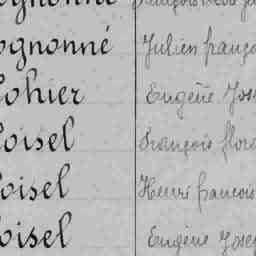 ognonné Julien franço
ohier Eugène Jos
oisel François flor
oisel Henri francois
oisel Eugène Josep